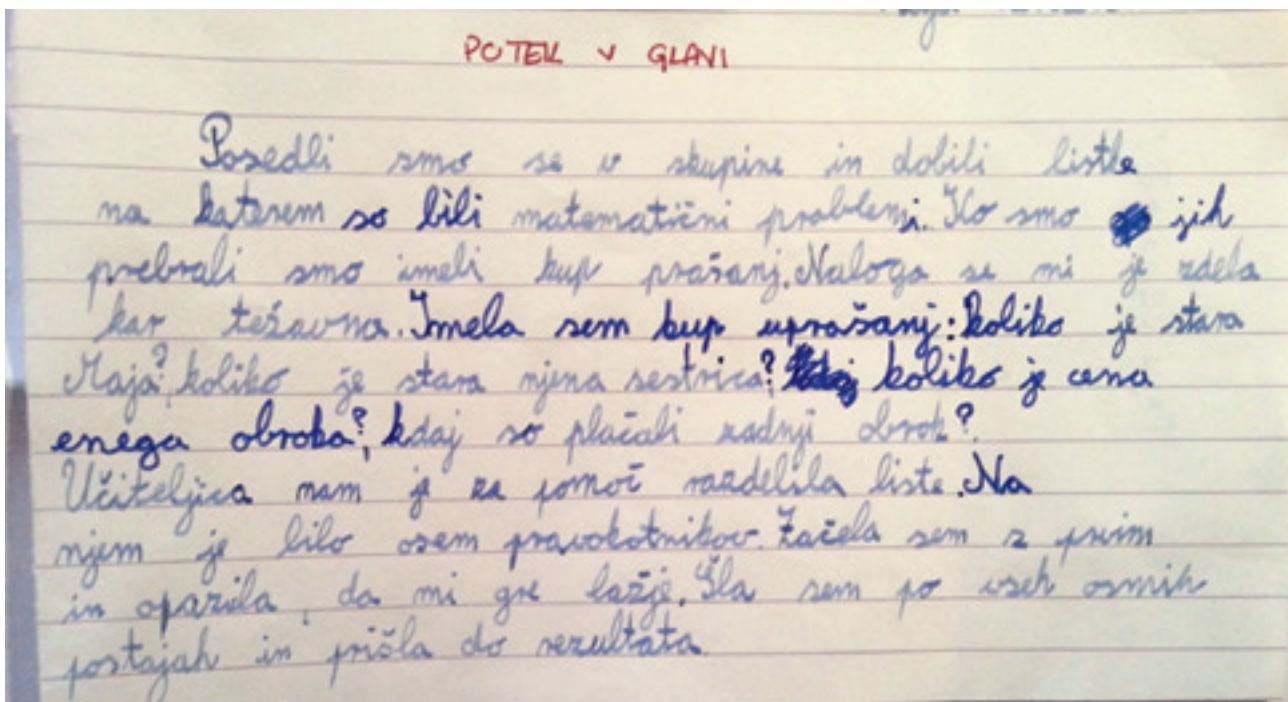 POTEK V GLAVI
Posedli smo se v skupine in dobili listke
na katerem so bili matematični problemi. Ko smo jih
prebrali smo imeli kup prašanj. Naloga se mi je zdela
kar težavna. Imela sem kup uprašanj: koliko je stara
Maja?, koliko je stara njena sestrica? koliko je cena
enega obroka?, kdaj so plačali zadnji obrok?
Učiteljica nam je za pomoč razdelila liste. Na
njem je bilo osem pravokotnikov. Začela sem z prvim
in opazila, da mi gre lažje. Šla sem po vseh osmih
postajah in prišla do rezultata.